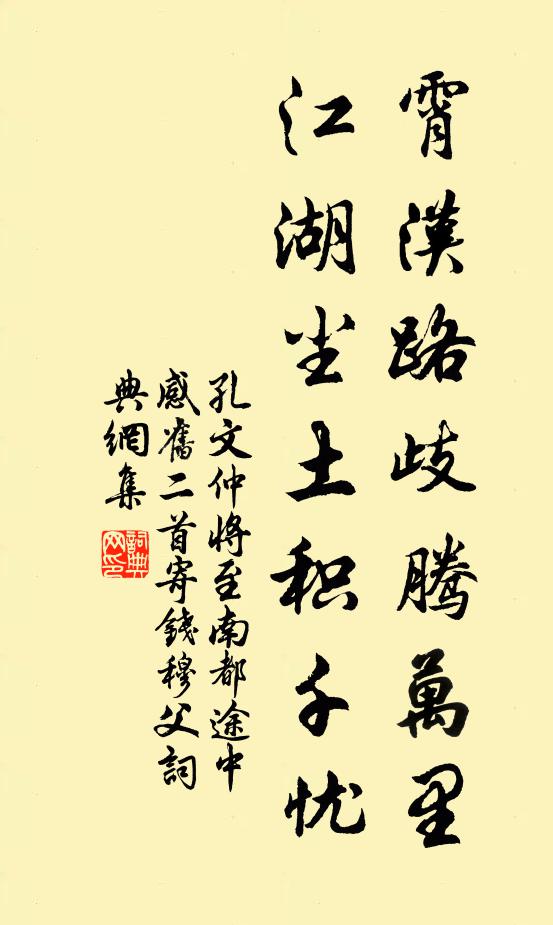 霄漢路歧騰萬里
江湖尘土积千忧
孔文仲將至南都途中
感舊二首寄錢穆父詞
典網集
詞典
网印